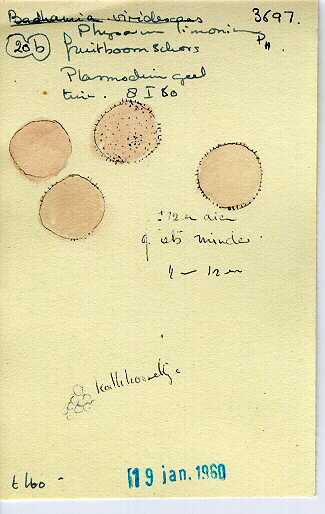 Badhamia viridescens 3697.
20b Physarum limonium
fruitboomschors PH.
Plasmodium geel
tuin. 8 I 60
± 12 µ diam
of iets minder.
11 – 12 µ
kalkkorreltjes
t 60 -
19 jan. 1960